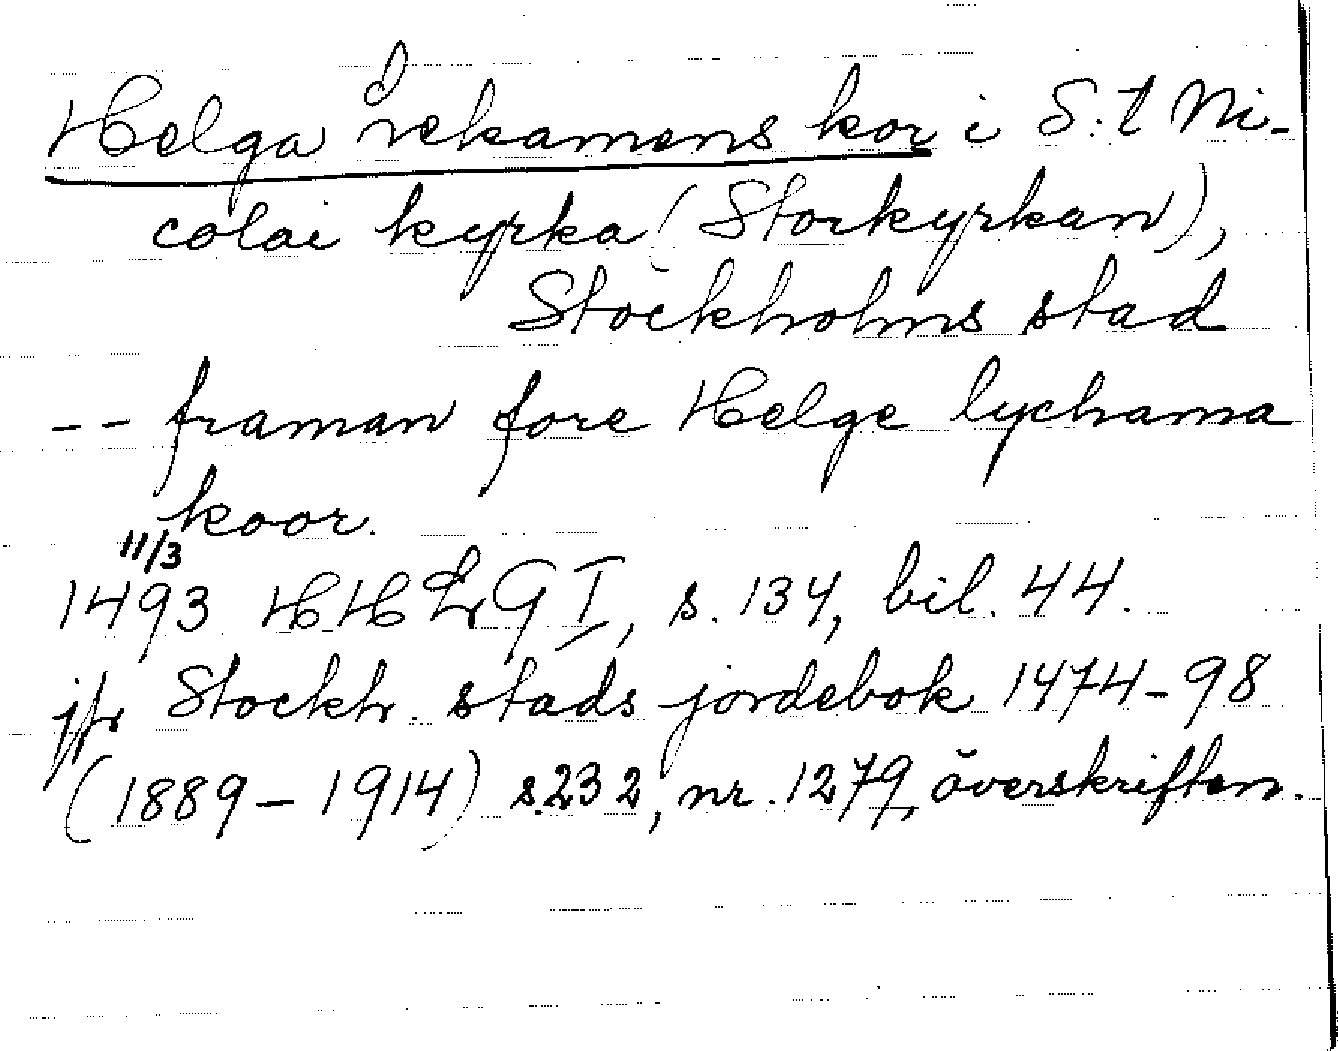 Helga Lekamens kor i S:t Ni-
colai kyrka (Storkyrkan),
Stockholms stad
-- framan fore Helge lychama
koor.
11/3
1493 HHLG I, s. 134, bil. 44.
jfr Stockh. stads jordebok 1474-98
(1889-1914) s. 232, nr. 1279, överskriften.